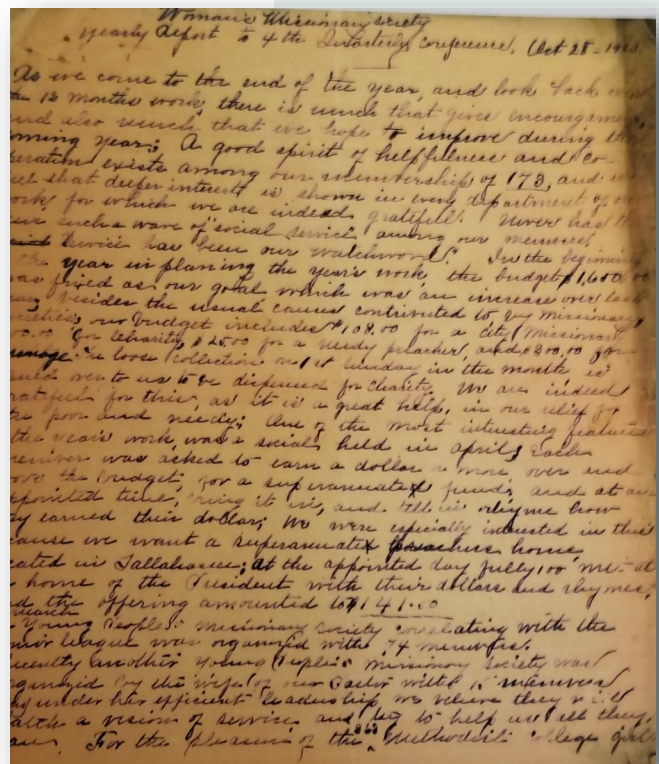 Woman's Missionary Society
yearly Report to 4th Quarterly Conference. Oct 28-
As we come to the end of the year, and look back
the 12 months work, there is much that gives
and also much that we hope to improve during
year; A good spirit of helpfulness and co
exists among our membership of 173, and
that deeper interest is shown in every department of
for which we are indeed gratefull. Never has
such a wave of social service among our members
Service has been our watchword. In the beginning
year in planing the year's work, the budget $1,600.00
fixed as our goal which was an increase over last
besides the usual causes contributed to by missionary
our budget includes $108.00 for a city missionary
for Charity, $25.00 for a needy preacher, and $300.00 for
The loose collection on 1st Sunday in the month is
over to us to be dispensed for charity. We are indeed
for this, as it is a great help, in our relief for
poor and needy; One of the most interesting features
the years work, was a social, held in april, Each
was asked to earn a dollar or more over and
the budget, for a superanuate fund, and at an
time, bring it in, and tell in rhyme how
earned their dollar; We were especially interested in this
cause we want a superanuate home
in Tallahassee; At the appointed day fully 100 met at
home of the President with their dollars and rhymes,
the offering amounted to $141.00
Young People's Missionary Society with the
league was organized with 74 members.
another Young People's Missionary Society was
by the wife of our Pastor with 15 members
under her efficient leadership we believe they will
a vision of service and to help us all they
For the pleasure of the Methodist